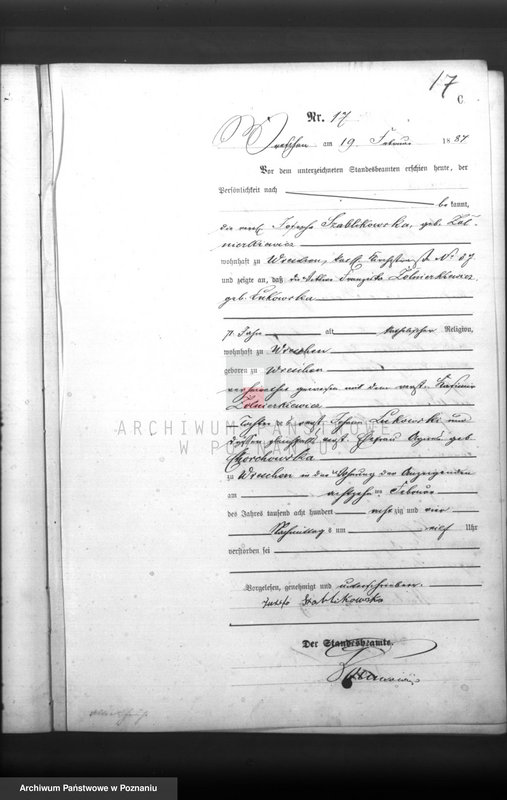 17
C
Nr. 17
Wreschen am 19 Februar 1884
Vor dem unterzeichneten Standesbeamten erschien heute, der
Persönlichkeit nach
bekannt,
die Szablikowska, geb. Zol-
nierkiewicz
wohnhaft zu Wreschen,
und zeigte an, daß die Wittwe Franziska Zolnierkiewicz
geb. Lukowska
71 Jahre alt, katholischer Religion,
wohnhaft zu Wreschen
geboren zu Wreschen
verheirathet gewesen mit dem verst. Kasimir
Zolnierkiewicz
Tochter des verst. Johann Lukowski und
dessen gleichfalls verst. Ehefrau geb.
zu Wreschen in der Wohnung der Anzeigenden
am achtzehnten Februar
des Jahres tausend acht hundert achtzig und vier
Nachmittags um elf Uhr
verstorben sei
Vorgelesen, genehmigt und unterschrieben.
Szablikowska
Der Standesbeamte.
ARCHIWUM PAŃSTWOWE
W POZNANIU
Archiwum Państwowe w Poznaniu